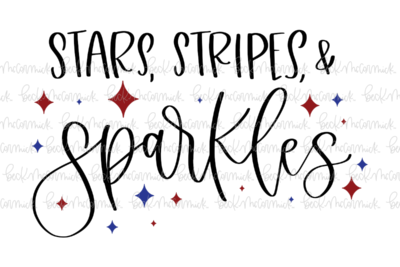 STARS, STRIPES, &
Sparkles